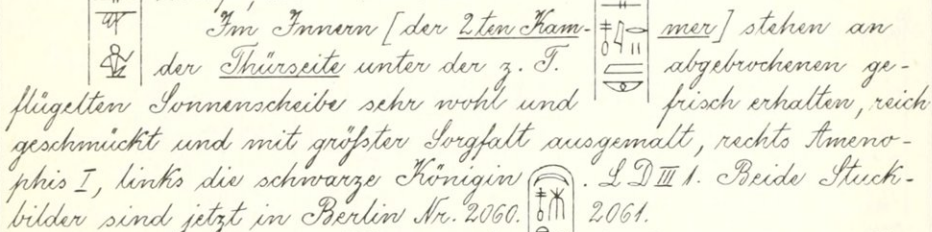 Im Innern [der 2ten Kam-mer] stehen an
der Thürseite unter der z. T. abgebrochenen ge-
flügelten Sonnenscheibe sehr wohl und frisch erhalten, reich
geschmückt und mit größter Sorgfalt ausgemalt, rechts Ameno-
phis I, links die schwarze Königin . L D III 1. Beide Stuck-
bilder sind jetzt in Berlin Nr. 2060. 2061.